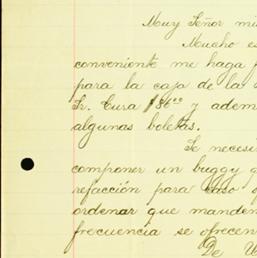 Muy Señor mi
Mucho es
conveniente me haga f
para la caja de la
Sr. Cura $86.00 y adem
algunas boletas.
Se necesi
componer un buggy q
refacción para caso
ordenar que manden
frecuencia se ofrecen
De U